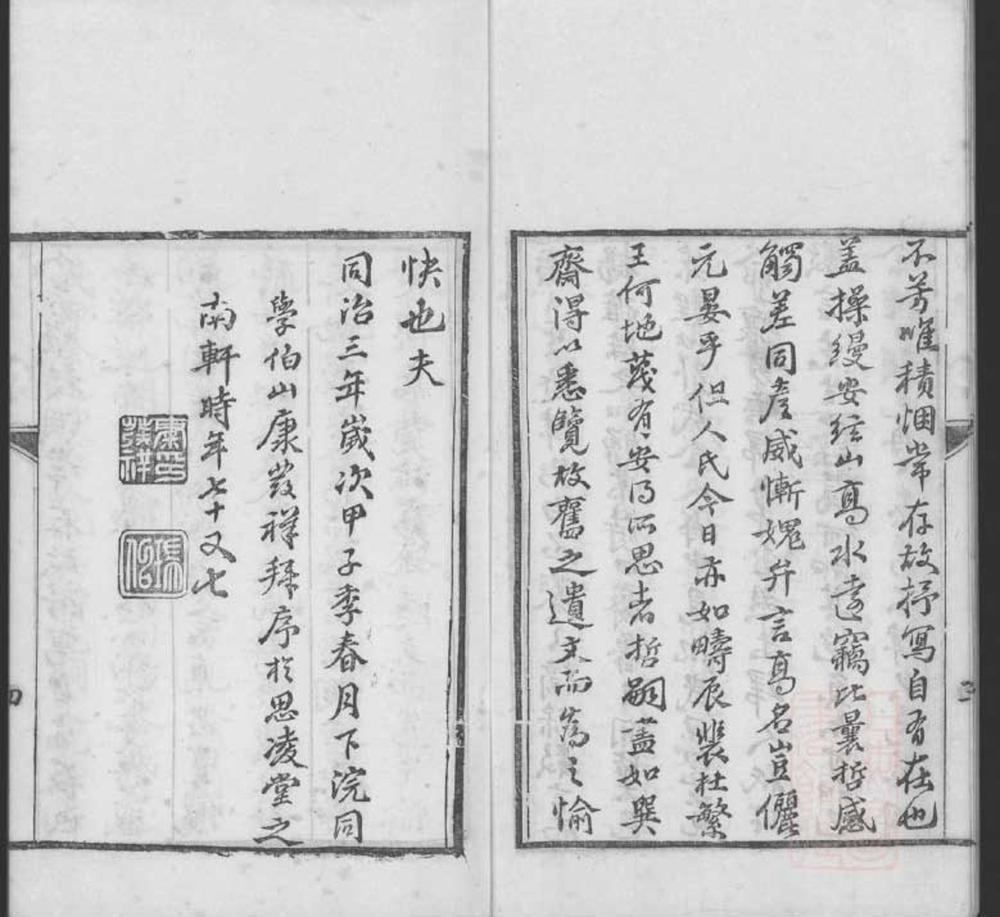 不芳唯積悃常存故抒寫自有在也
蓋操縵安絃山高水遠竊比曩哲感
觸差同産威慚媿弁言高名豈儷
元晏乎但人氏今日亦如疇辰裴杜繁
王何地蔑有安得所思者哲嗣蓋如巽
齋得以悉覽故舊之遺文而為之愉
快也夫
同治三年歲次甲子季春月下浣同
學伯山康發祥拜序於思凌堂之
南軒時年七十又七
康印發祥
伯山